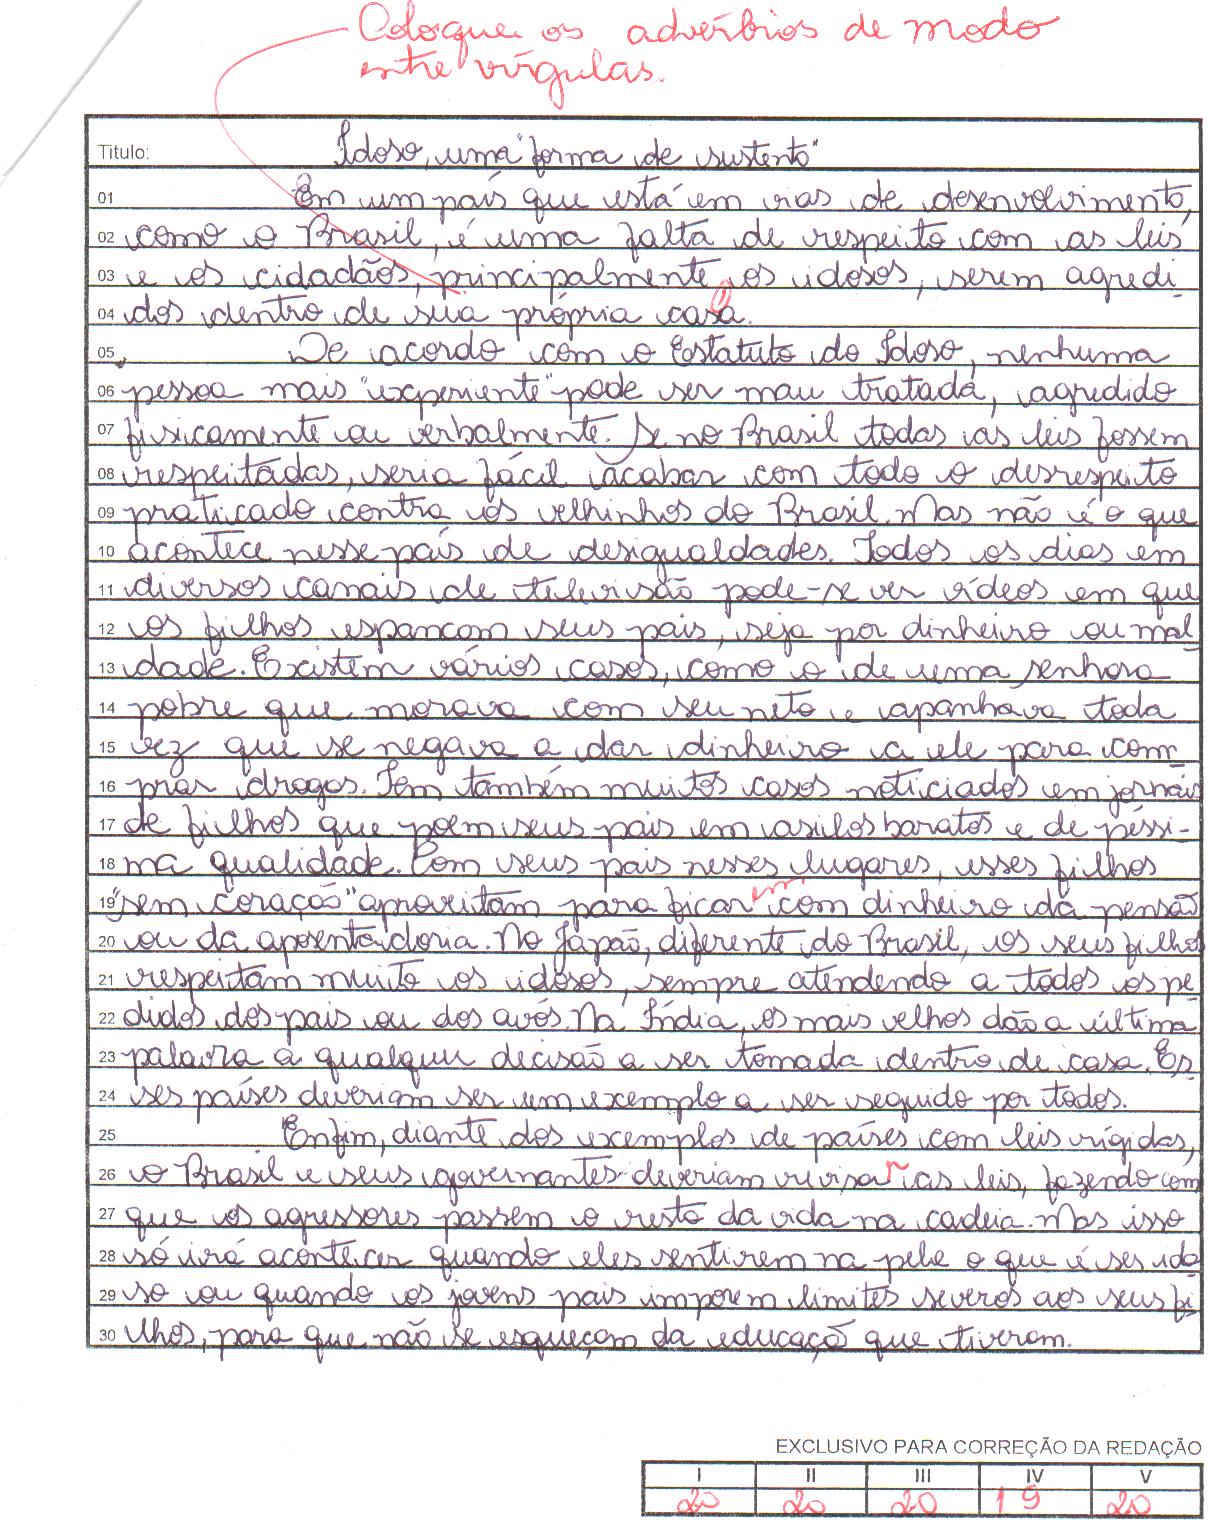 Coloque os advérbios de modo
entre vírgulas.
Titulo: Idoso, uma "forma de sustento"
01 Em um país que está em vias de desenvolvimento,
02 como o Brasil, é uma falta de respeito com as leis
03 e os cidadãos, principalmente, os idosos, serem agredi-
04 dos dentro de sua própria casa.
05 De acordo com o Estatuto do Idoso, nenhuma
06 pessoa mais "experiente" pode ser mau tratada, agredido
07 fisicamente ou verbalmente. Se no Brasil todas as leis fossem
08 respeitadas, seria fácil acabar com todo o desrespeito
09 praticado contra os velhinhos do Brasil. Mas não é o que
10 acontece nesse país de desigualdades. Todos os dias em
11 diversos canais de televisão pode-se ver vídeos em que
12 os filhos espancam seus pais, seja por dinheiro ou mal-
13 dade. Existem vários casos, como o de uma senhora
14 pobre que morava com seu neto e apanhava toda
15 vez que se negava a dar dinheiro a ele para com-
16 prar drogas. Tem também muitos casos noticiados em jornais
17 de filhos que põem seus pais em asilos baratos e de péssi-
18 ma qualidade. Com seus pais nesses lugares, esses filhos
19 "sem coração" aproveitam para ficar em com dinheiro da pensão
20 ou da aposentadoria. No Japão, diferente do Brasil, os seus filhos
21 respeitam muito os idosos, sempre atendendo a todos os pe-
22 didos dos pais ou dos avós. Na Índia, os mais velhos dão a última
23 palavra a qualquer decisão a ser tomada dentro de casa. Es-
24 ses países deveriam ser um exemplo a ser seguido por todos.
25 Enfim, diante dos exemplos de países com leis rígidas,
26 o Brasil e seus governantes deveriam revisar as leis, fazendo com
27 que os agressores passem o resto da vida na cadeia. Mas isso
28 só irá acontecer quando eles sentirem na pele o que é ser ido-
29 so ou quando os jovens pais imporem limites severos aos seus fi-
30 lhos, para que não se esqueçam da educaçõ que tiveram.
EXCLUSIVO PARA CORREÇÃO DA REDAÇÃO
I II III IV V
20 20 20 19 20